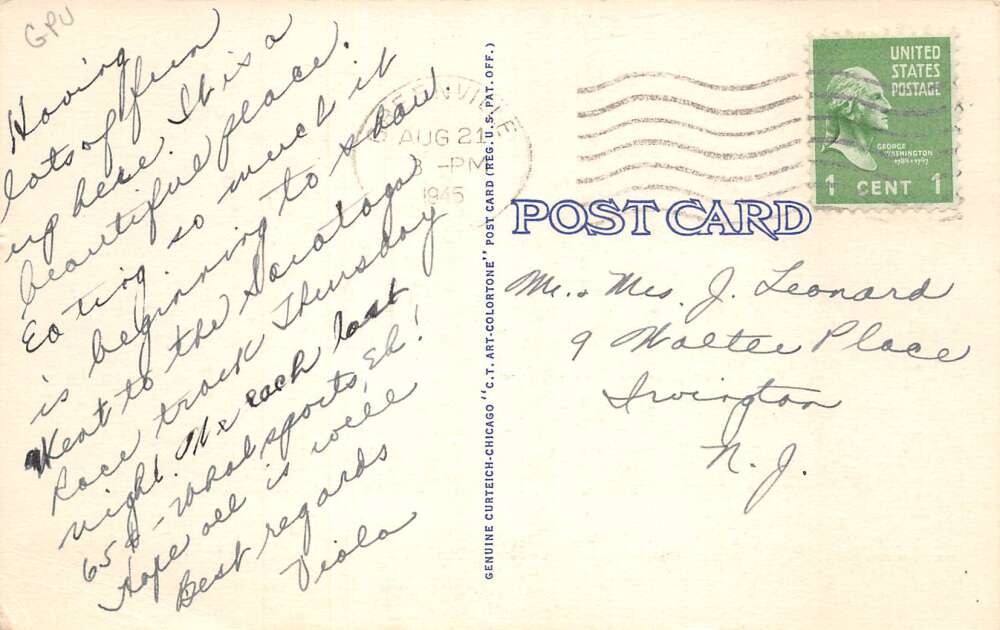 GPU
Having
lots of fun
up here. It is a
beautiful place.
Eating so much it
is beginning to show.
Went to the Saratoga
Race track Thursday
night. We each lost
65¢ - What sports, Eh!
Hope all is well
Best regards
Viola
GENUINE CURTEICH-CHICAGO "C.T. ART-COLORTONE" POST CARD (REG. U.S. PAT. OFF.)
AUG 21
3 - PM
1945
UNITED
STATES
POSTAGE
GEORGE
WASHINGTON
1789-1797
1 CENT 1
POST CARD
Mr. & Mrs. J. Leonard
9 Walter Place
Irvington
N. J.